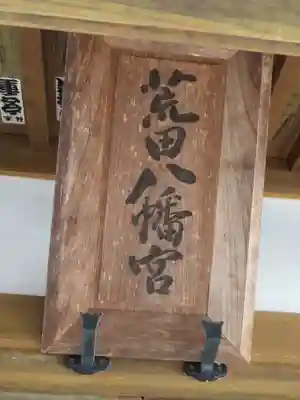 荒田八幡宮